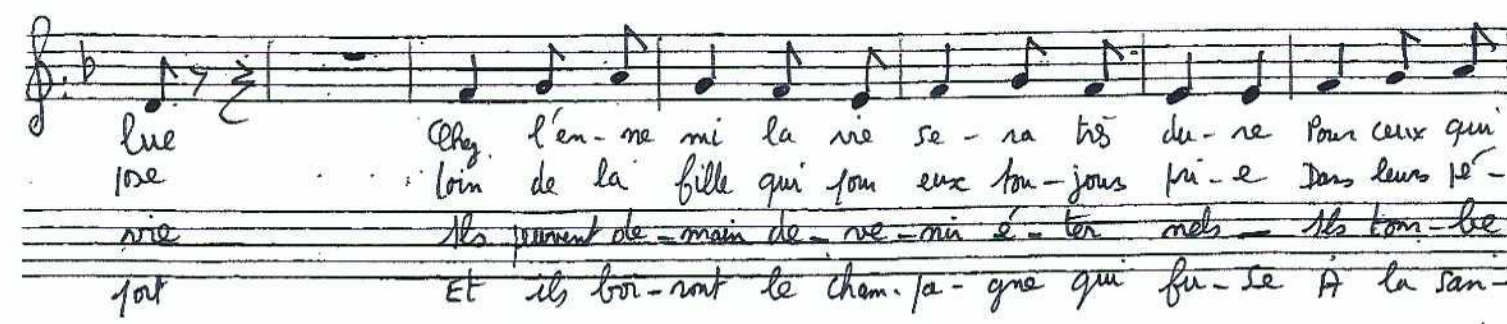 lue Chez l'en-ne mi la vie se-ra très du-re Pour ceux qui
pose loin de la fille qui pour eux tou-jours pri-e Dans leurs pé-
vie Ils peuvent de-main de-ve-nir é-ter nels _ Ils tom-be
port Et ils boi-ront le cham-pa-gne qui fu-se À la san-